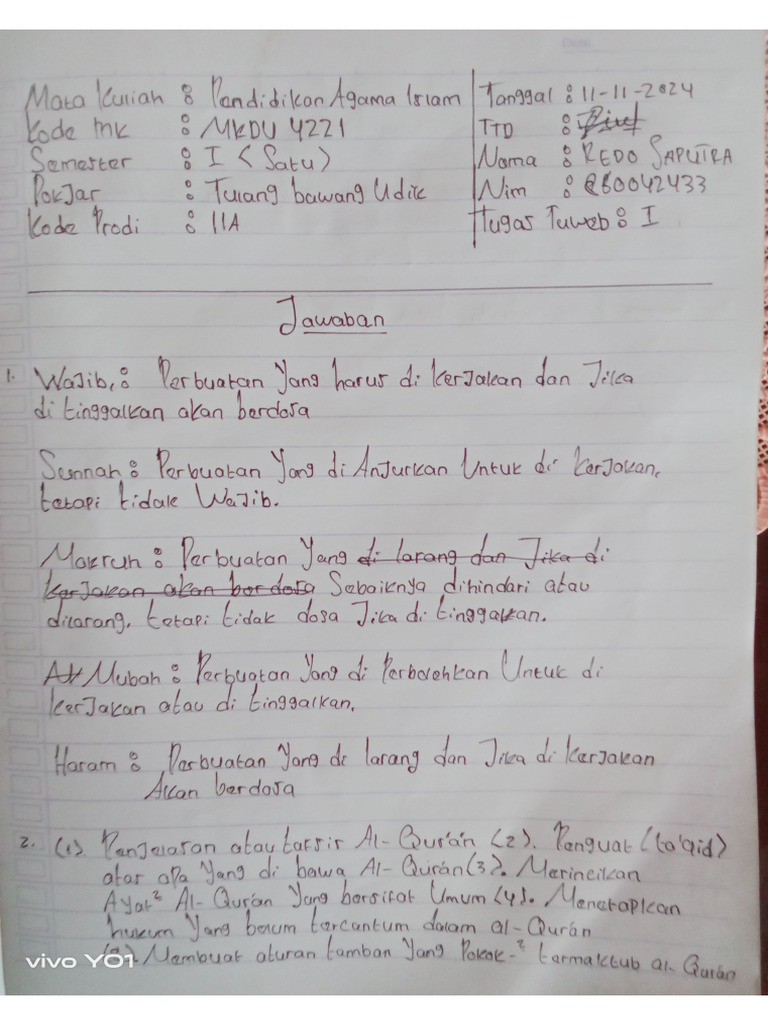 Mata Kuliah : Pendidikan Agama Islam
Kode MK : MKDU 4221
Semester : I (Satu)
Pokjar : Tulang bawang Udik
Kode Prodi : 11A
Tanggal : 11-11-2024
TTD :
Nama : REDO SAPUTRA
Nim : 860042433
Tugas Tuweb : I
Jawaban
1. Wajib, : Perbuatan Yang harus di kerjakan dan Jika
di tinggalkan akan berdosa
Sunnah : Perbuatan Yang di Anjurkan Untuk di kerjakan,
tetapi tidak Wajib.
Makruh : Perbuatan Yang di larang dan Jika di
kerjakan akan berdosa Sebaiknya dihindari atau
dilarang, tetapi tidak dosa Jika di tinggalkan.
Mubah : Perbuatan Yang di Perbolehkan Untuk di
kerJakan atau di tinggalkan,
Haram : Perbuatan Yang di larang dan Jika di kerjakan
Akan berdosa
2. (1). Penjelasan atau tafsir Al-Qur'an (2). Penguat (ta'qid)
atas apa Yang di bawa Al-Quran (3). Merincikan
Ayat² Al-Quran Yang bersifat Umum (4). Menetapkan
hukum Yang belum tercantum dalam al-Qurán
Membuat aturan tamban Yang Pokok-² termaktub al-Qurán
vivo Y01